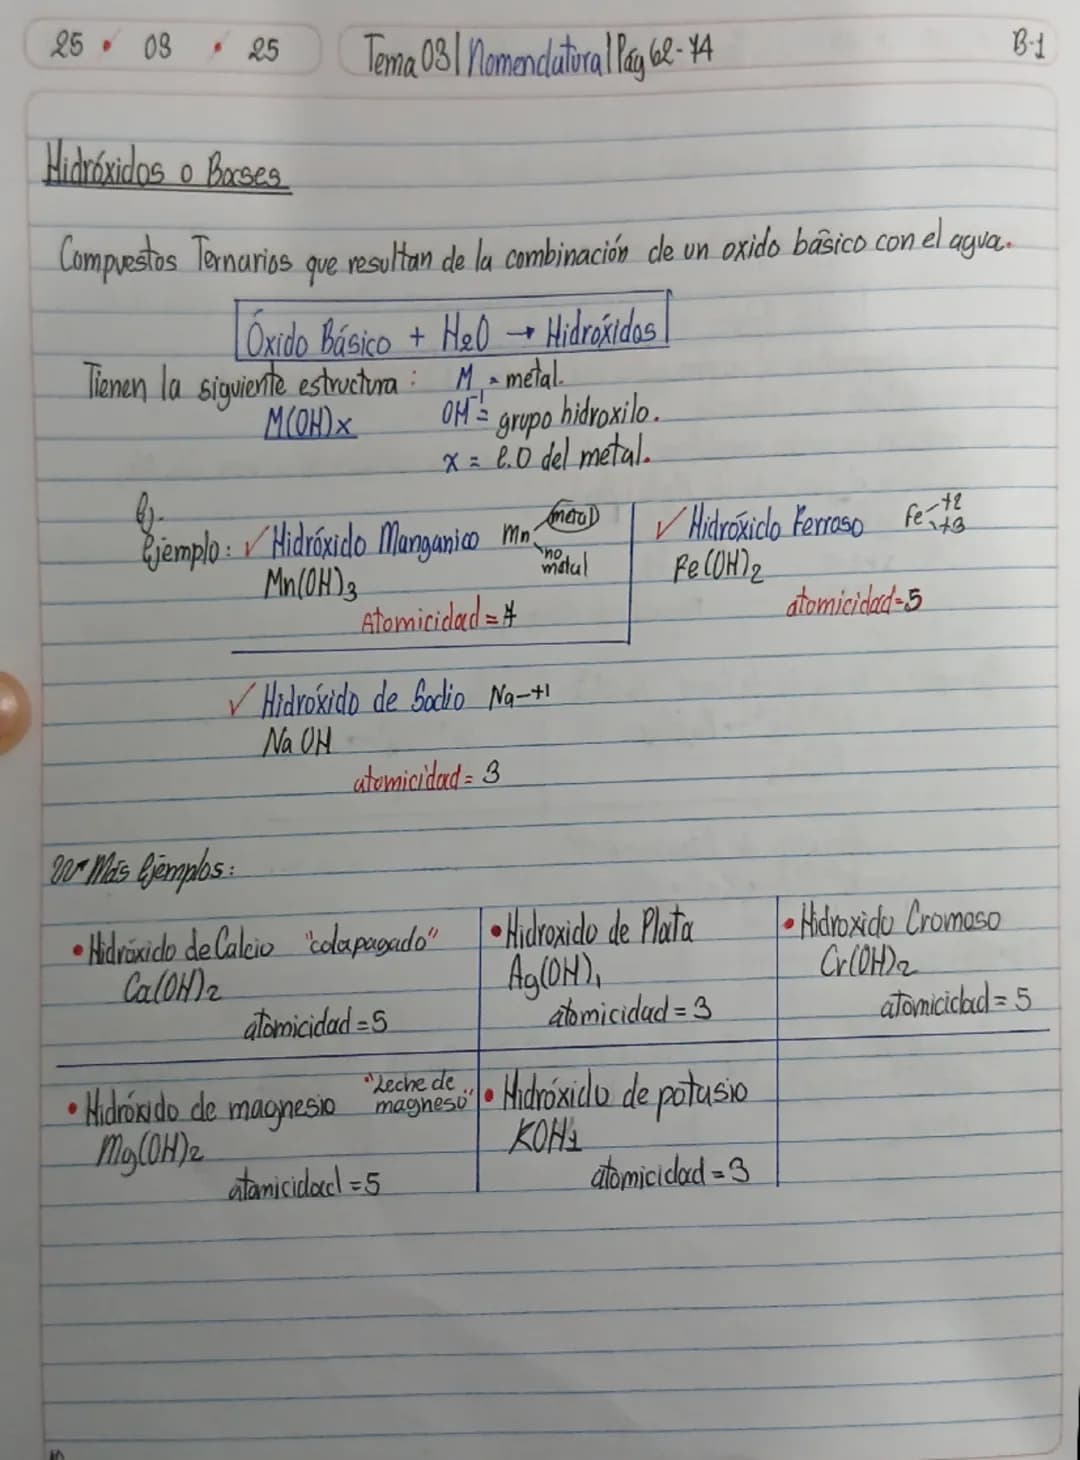 25 • 03 • 25
Tema 03 | Nomenclatura | Pág 62-74
B-1
Hidróxidos o Bases
Compuestos Ternarios que resultan de la combinación de un oxido básico con el agua.
Óxido Básico + H2O → Hidróxidos
Tienen la siguiente estructura: M = metal.
M(OH)x OH⁻¹ = grupo hidroxilo.
x = e.O del metal.
Ej.
Ejemplo: ✓ Hidróxido Manganico Mn metal no metal
Mn(OH)3
Atomicidad = 7
✓ Hidróxido Ferroso Fe +2 +3
Fe(OH)2
atomicidad = 5
✓ Hidróxido de Sodio Na-+1
Na OH
atomicidad = 3
Más Ejemplos:
• Hidróxido de Calcio "cal apagado"
Ca(OH)2
atomicidad = 5
• Hidroxido de Plata
Ag(OH)1
atomicidad = 3
• Hidroxido Cromoso
Cr(OH)2
atomicidad = 5
• Hidróxido de magnesio "Leche de magneso"
Mg(OH)2
atomicidad = 5
• Hidróxido de potasio
KOH1
atomicidad = 3